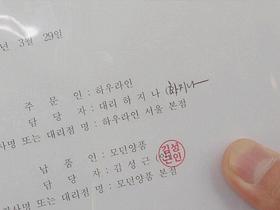 년 3월 29일
주 문 인 : 하우라인
담 당 자 : 대리 하 지 나 (하지나
사명 또는 대리점 명 : 하우라인 서울 본점
납 품 인 : 모던양품
담 당 자 : 김 성 근 (인) 김성근인
사명 또는 대리점 명 : 모던양품 본점